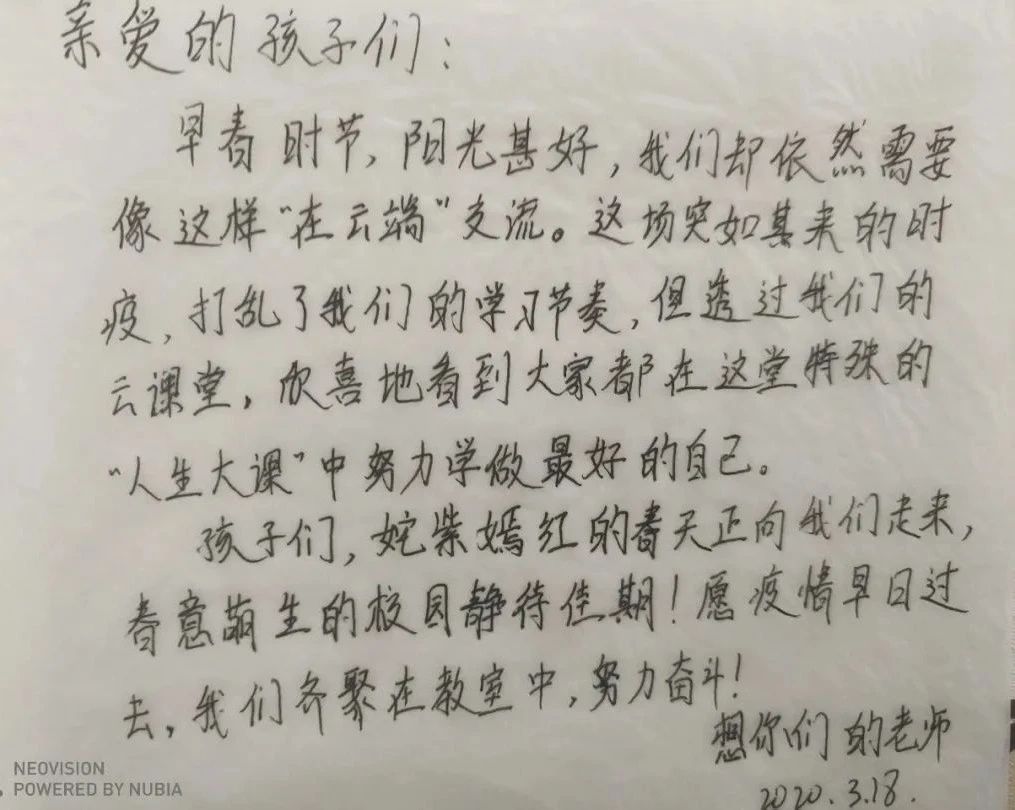 亲爱的孩子们：
早春时节，阳光甚好，我们却依然需要
像这样“在云端”交流。这场突如其来的时
疫，打乱了我们的学习节奏，但透过我们的
云课堂，欣喜地看到大家都在这堂特殊的
“人生大课”中努力学做最好的自己。
孩子们，姹紫嫣红的春天正向我们走来，
春意萌生的校园静待佳期！愿疫情早日过
去，我们齐聚在教室中，努力奋斗！
想你们的老师
2020.3.18.
NEOVISION
POWERED BY NUBIA